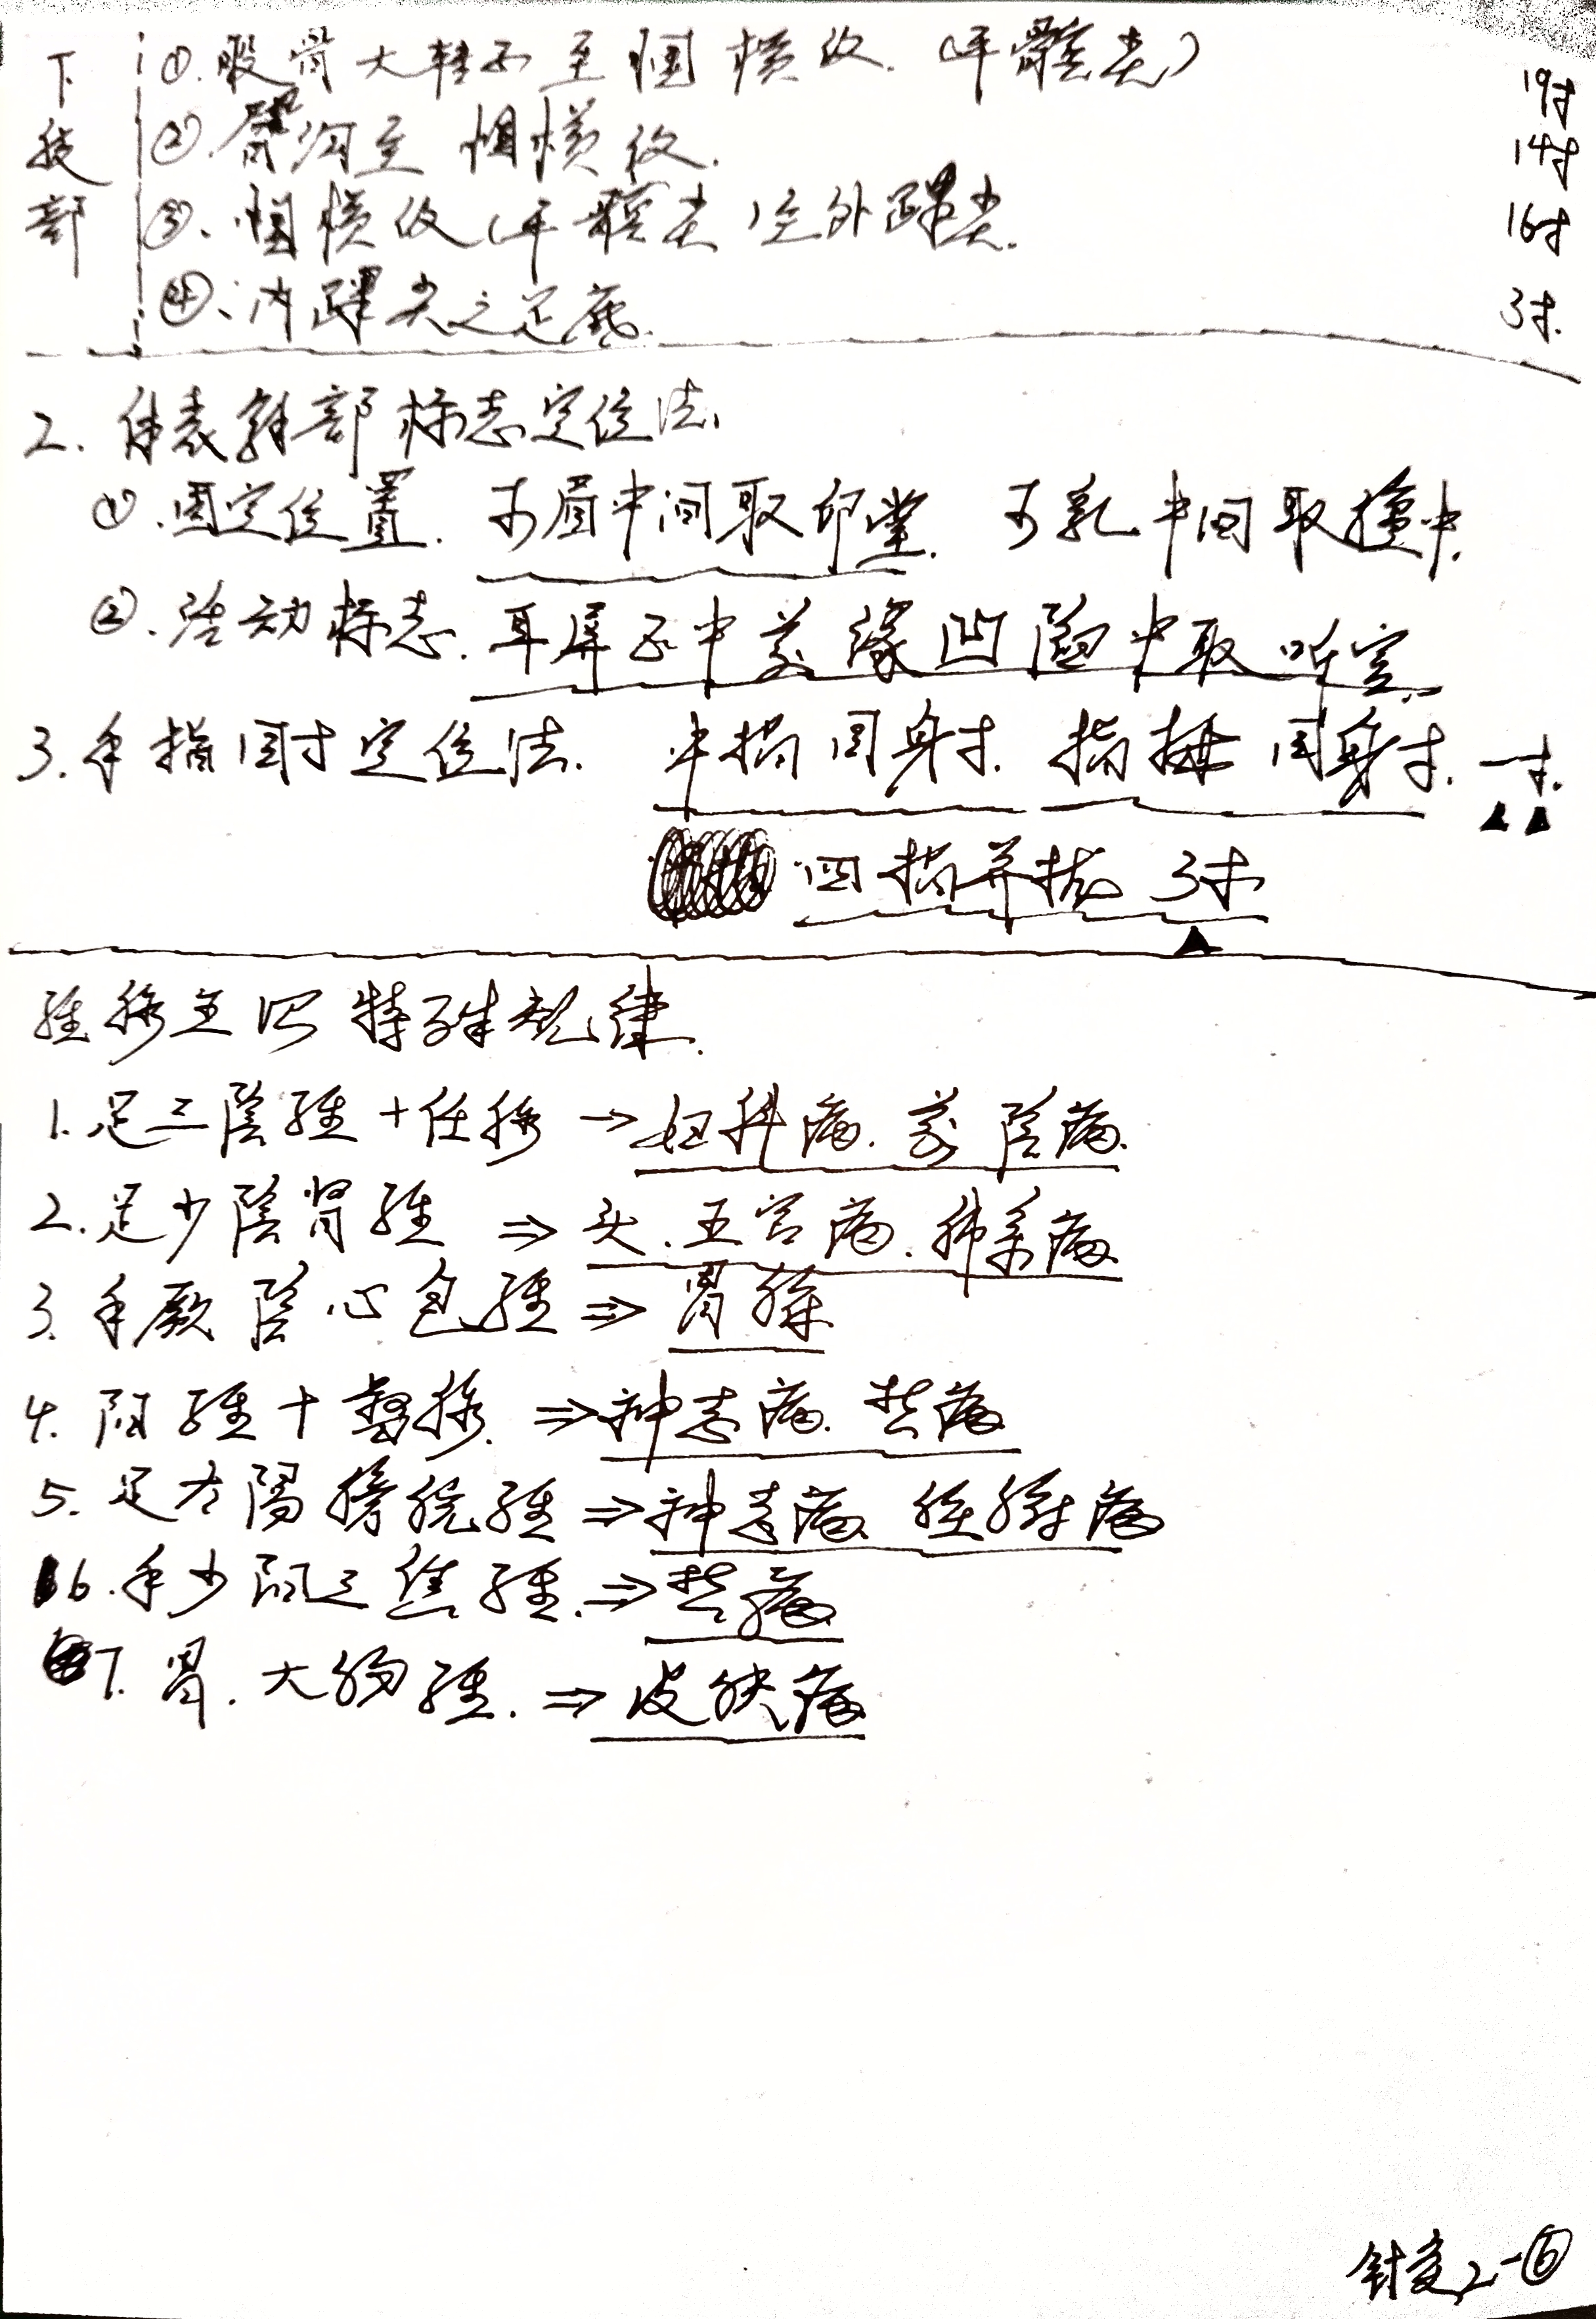 下肢部
①.股骨大转子至腘横纹.(平髌尖) 19寸
②.臀沟至腘横纹. 14寸
③.腘横纹(平髌尖)至外踝尖. 16寸
④.内踝尖之足底. 3寸.
2.体表解部标志定位法.
①.固定位置. 两眉中间取印堂. 两乳中间取膻中.
②.活动标志. 耳屏正中前缘凹陷中取听宫.
3.手指同寸定位法. 中指同身寸. 指拇同身寸. 一寸.
四指并拢 3寸
經脉主治特殊规律.
1.足三陰經+任脉→妇科病.前陰病.
2.足少陰肾經⇒头.五官病.肺系病
3.手厥陰心包經⇒胃病
4.阳經+督脉.⇒神志病.热病
5.足太陽膀胱經⇒神志病 脏腑病
6.手少阳三焦經.⇒热病
7.胃.大肠經.⇒皮肤病
针灸2-⑥